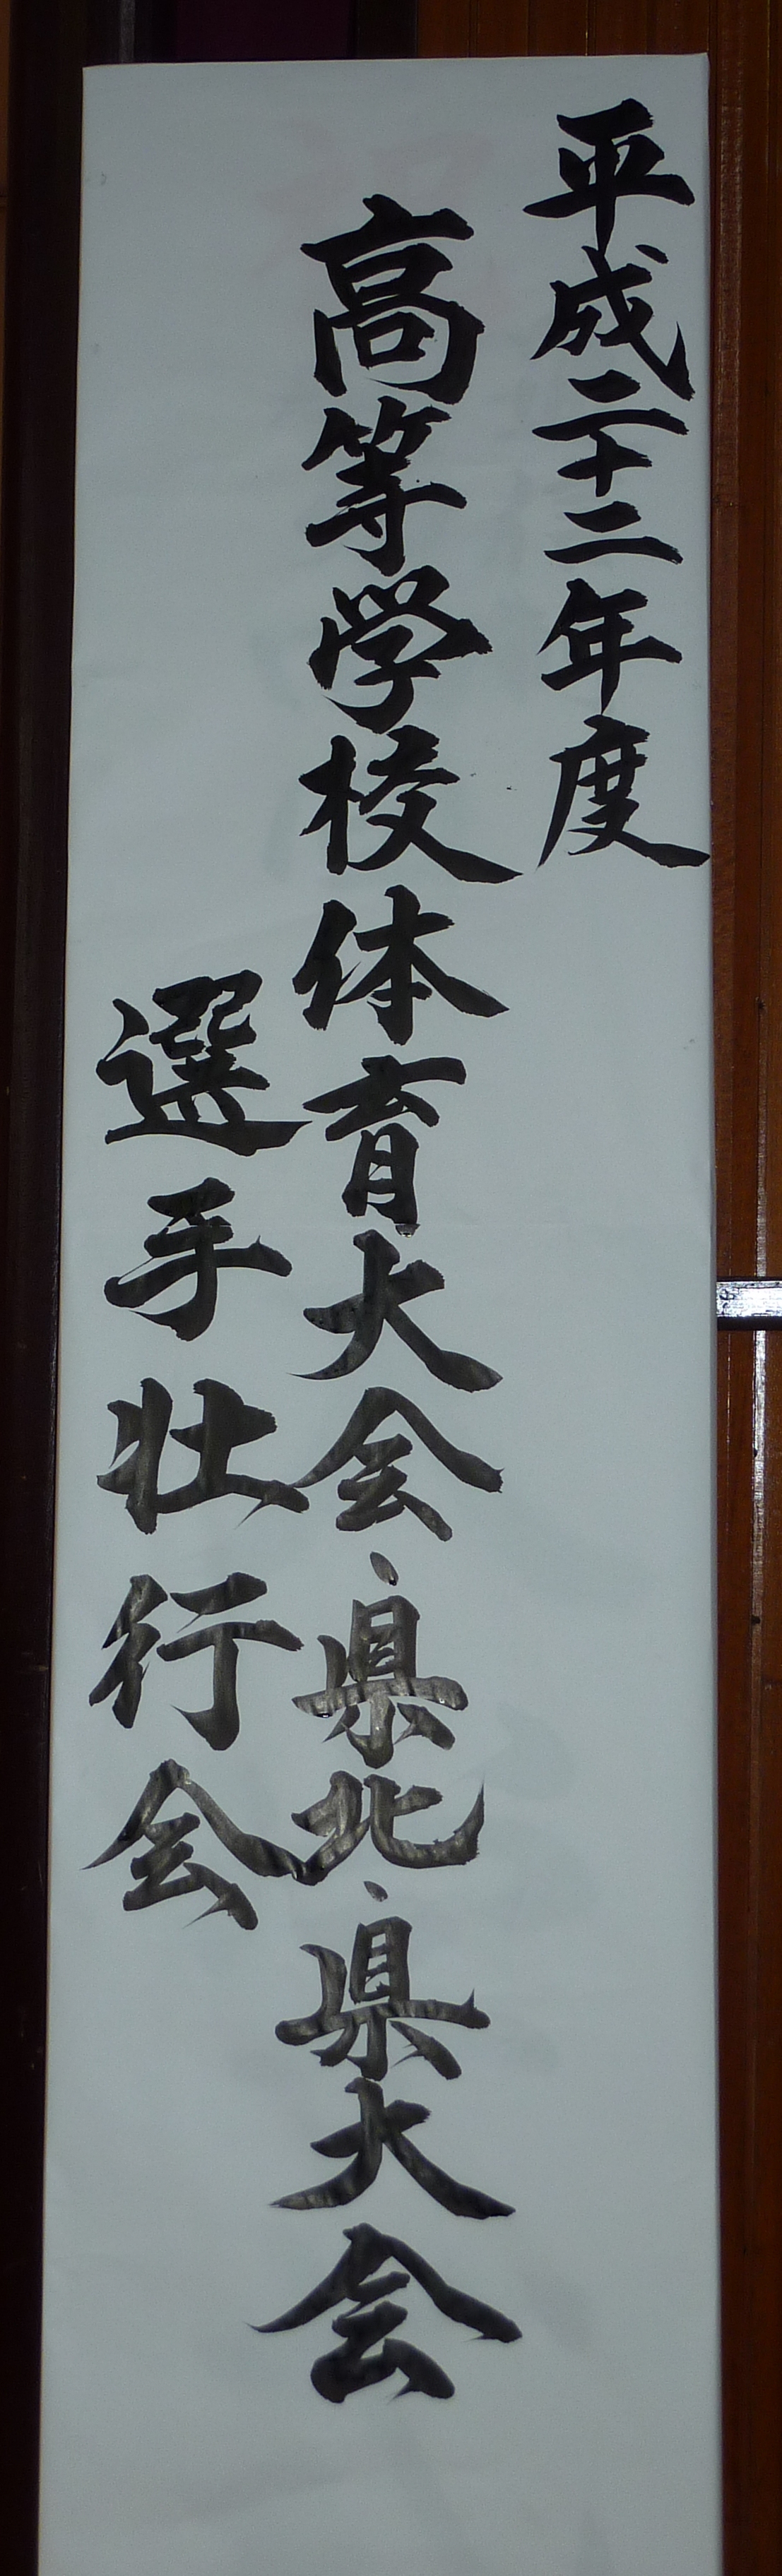 平成二十二年度
高等学校体育大会・県北・県大会
選手壮行会